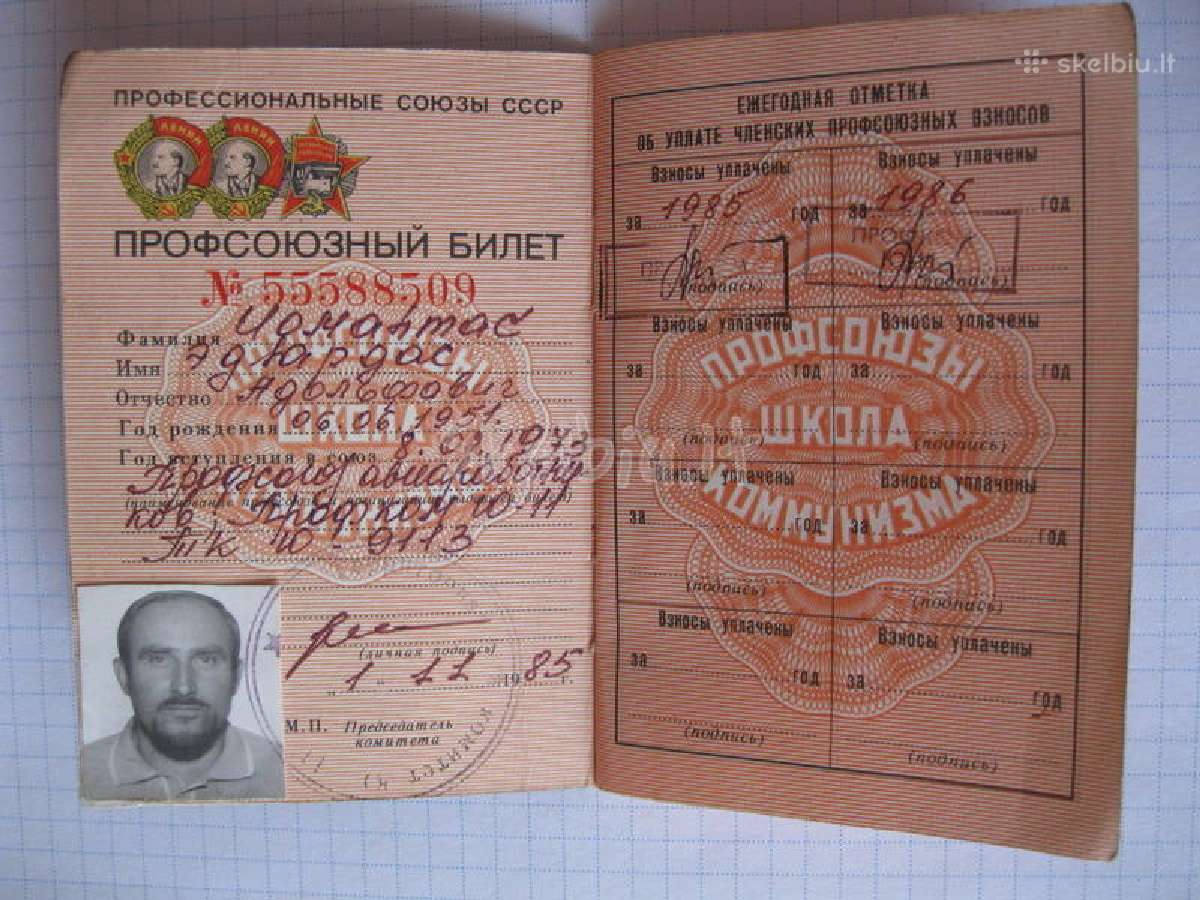 skelbiu.lt
ПРОФЕССИОНАЛЬНЫЕ СОЮЗЫ СССР
ЛЕНИН ЛЕНИН
ПРОФСОЮЗНЫЙ БИЛЕТ
№ 55588509
Фамилия
Имя Эдуардас
Отчество Адольфович
Год рождения 06.06.1951.
Год вступления в союз 1973
Профсоюз авиаработни
ков, Профком Ю-11
ТК Ю-9113
(личная подпись)
„ 1 “ 11 1985 г.
М.П. Председатель
комитета
КОМИТЕТ
ЕЖЕГОДНАЯ ОТМЕТКА
ОБ УПЛАТЕ ЧЛЕНСКИХ ПРОФСОЮЗНЫХ ВЗНОСОВ
Взносы уплачены Взносы уплачены
за 1985 год за 1986 год
(подпись) (подпись)
Взносы уплачены Взносы уплачены
за год за год
(подпись) (подпись)
Взносы уплачены Взносы уплачены
за год за год
(подпись) (подпись)
Взносы уплачены Взносы уплачены
за за год
(подпись) (подпись)
ПРОФСОЮЗЫ
ШКОЛА
КОММУНИЗМА